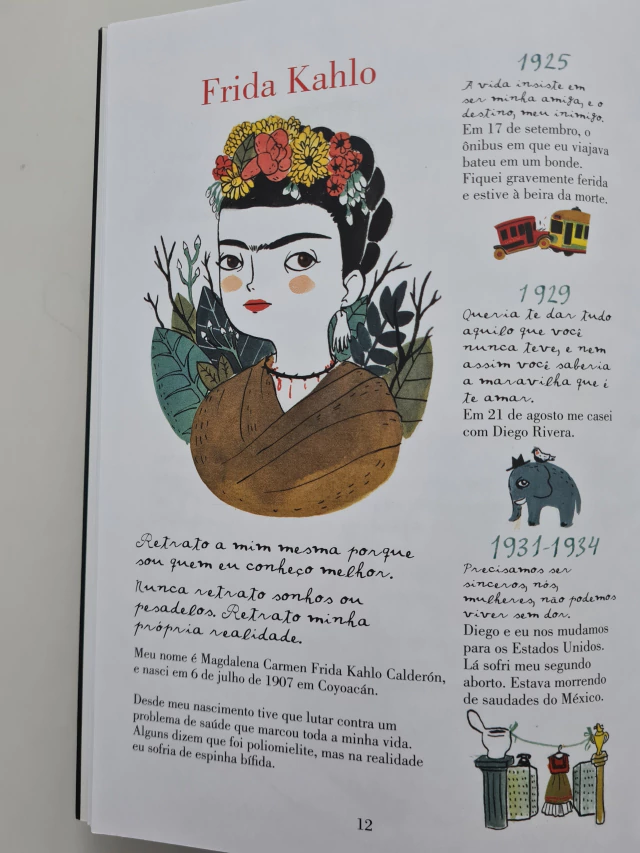 Frida Kahlo
Retrato a mim mesma porque
sou quem eu conheço melhor.
Nunca retrato sonhos ou
pesadelos. Retrato minha
própria realidade.
Meu nome é Magdalena Carmen Frida Kahlo Calderón,
e nasci em 6 de julho de 1907 em Coyoacán.
Desde meu nascimento tive que lutar contra um
problema de saúde que marcou toda a minha vida.
Alguns dizem que foi poliomielite, mas na realidade
eu sofria de espinha bífida.
1925
A vida insiste em
ser minha amiga, e o
destino, meu inimigo.
Em 17 de setembro, o
ônibus em que eu viajava
bateu em um bonde.
Fiquei gravemente ferida
e estive à beira da morte.
1929
Queria te dar tudo
aquilo que você
nunca teve, e nem
assim você saberia
a maravilha que é
te amar.
Em 21 de agosto me casei
com Diego Rivera.
1931-1934
Precisamos ser
sinceros, nós,
mulheres, não podemos
viver sem dor.
Diego e eu nos mudamos
para os Estados Unidos.
Lá sofri meu segundo
aborto. Estava morrendo
de saudades do México.
12